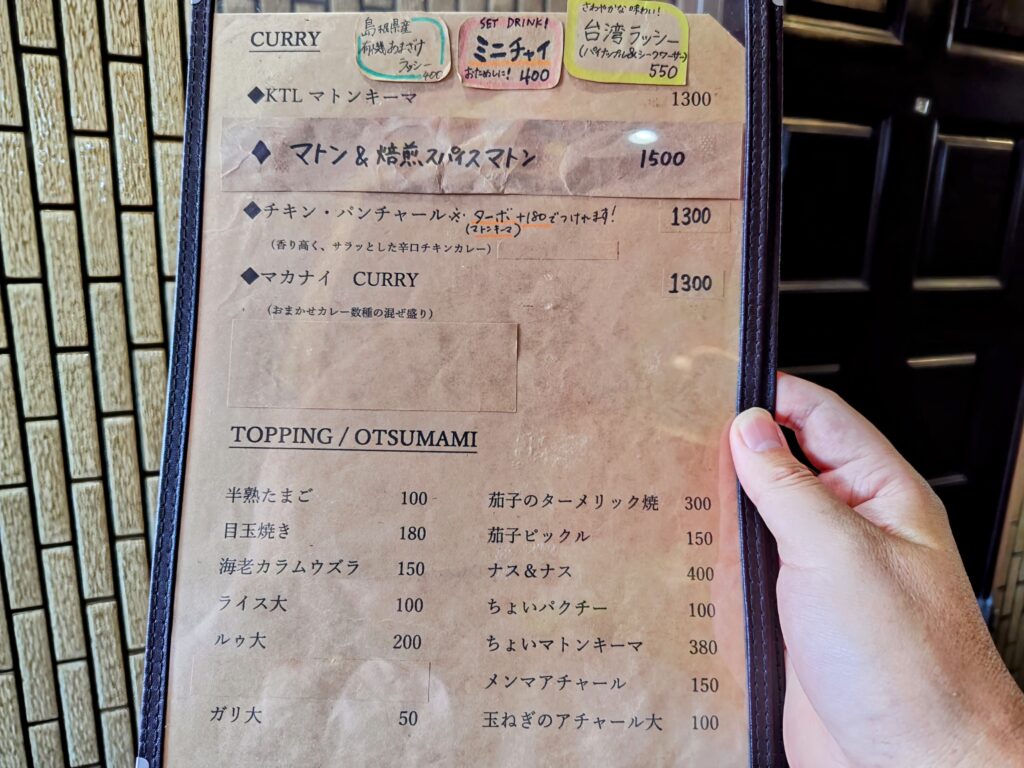 CURRY
島根県産
有機あまざけ
ラッシー
400
SET DRINK!
ミニチャイ
おためしに! 400
さわやかな味わい!
台湾ラッシー
(パイナップル&シークワーサー)
550
◆KTL マトンキーマ 1300
◆ マトン & 焙煎スパイスマトン 1500
◆チキン・パンチャール ※ ターボ +180でつけれます! 1300
(マトンキーマ)
(香り高く、サラッとした辛口チキンカレー)
◆マカナイ CURRY 1300
(おまかせカレー数種の混ぜ盛り)
TOPPING / OTSUMAMI
半熟たまご 100
目玉焼き 180
海老カラムウズラ 150
ライス大 100
ルゥ大 200
ガリ大 50
茄子のターメリック焼 300
茄子ピックル 150
ナス&ナス 400
ちょいパクチー 100
ちょいマトンキーマ 380
メンマアチャール 150
玉ねぎのアチャール大 100